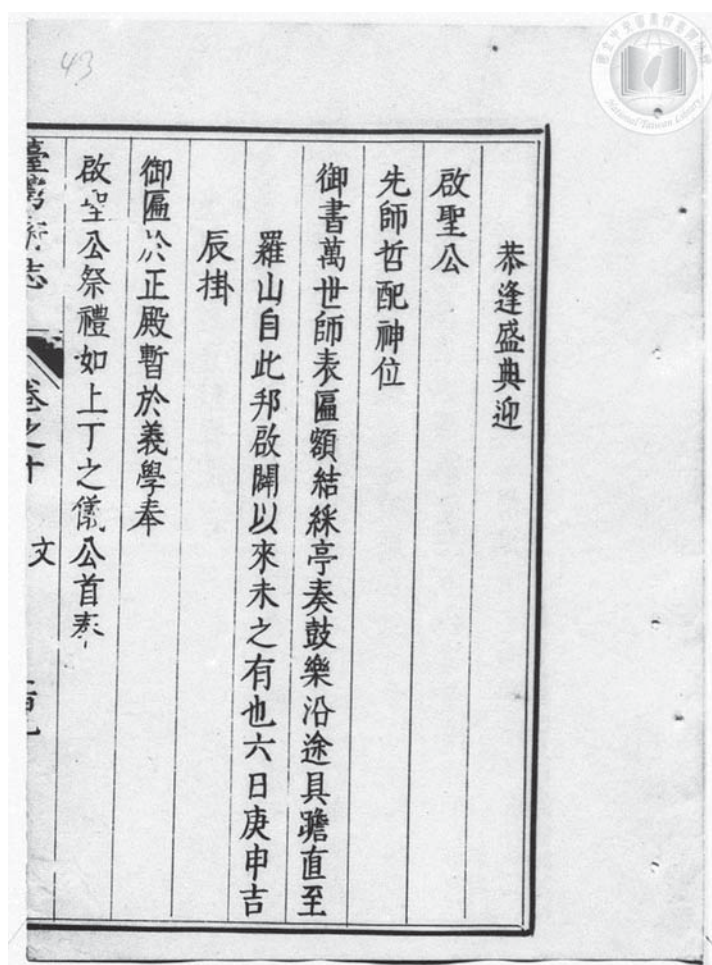 43
恭逢盛典迎
啟聖公
先師哲配神位
御書萬世師表匾額結綵亭奏鼓樂沿途具瞻直至
羅山自此邦啟闢以來未之有也六日庚申吉
辰掛
御匾於正殿暫於義學奉
啟聖公祭禮如上丁之儀公首奉
臺灣府志
卷之十
文
National Taiwan Library